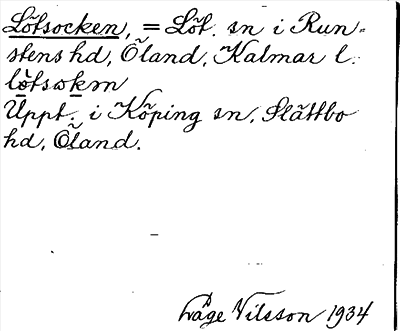 Lötsocken, = Löt. sn i Run-
stens hd, Öland, Kalmar l.
lø̀tsωkεn
Uppt. i Köping sn, Slättbo
hd, Öland.
Låge Nilsson 1934